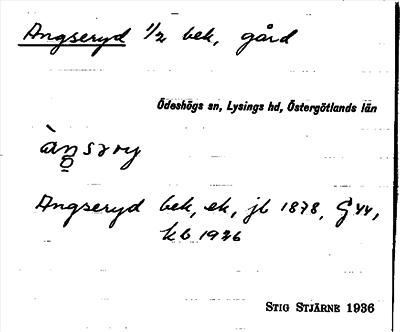 Angseryd 1/2 bek, gård
Ödeshögs sn, Lysings hd, Östergötlands län
Angseryd bek, ek, jb 1878, G 44,
kb 1926
STIG STJÄRNE 1936